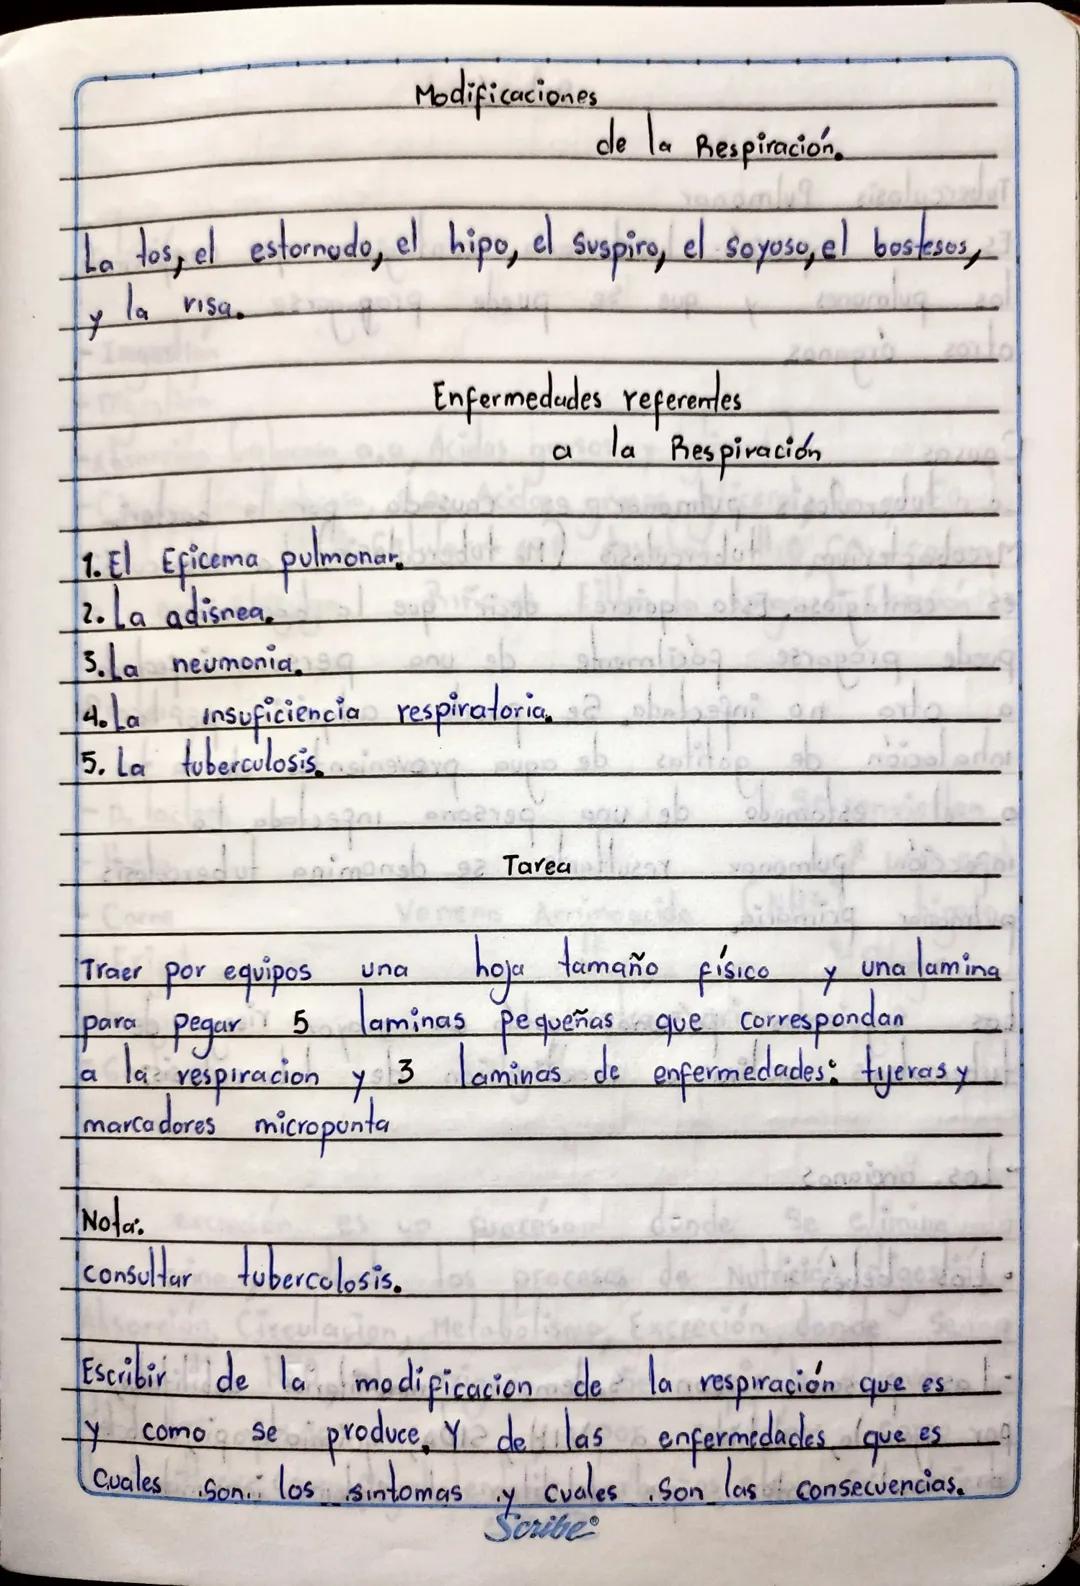 Modificaciones
de la Respiración.
La tos, el estornudo, el hipo, el suspiro, el soyoso, el bostesos,
y la risa.
Enfermedades referentes
a la Respiración
1. El Eficema pulmonar.
2. La adisnea.
3. La neumonia.
4. La insuficiencia respiratoria.
5. La tuberculosis.
Tarea
Traer por equipos una hoja tamaño físico y una lamina
para pegar 5 laminas pequeñas que correspondan
a la respiracion y 3 laminas de enfermedades: tijeras y
marcadores micropunta
Nota:
consultar tuberculosis.
Escribir de la modificacion de la respiración que es
y como se produce, Y de las enfermedades que es
Cuales son los sintomas y cuales son las consecuencias.
Scribe